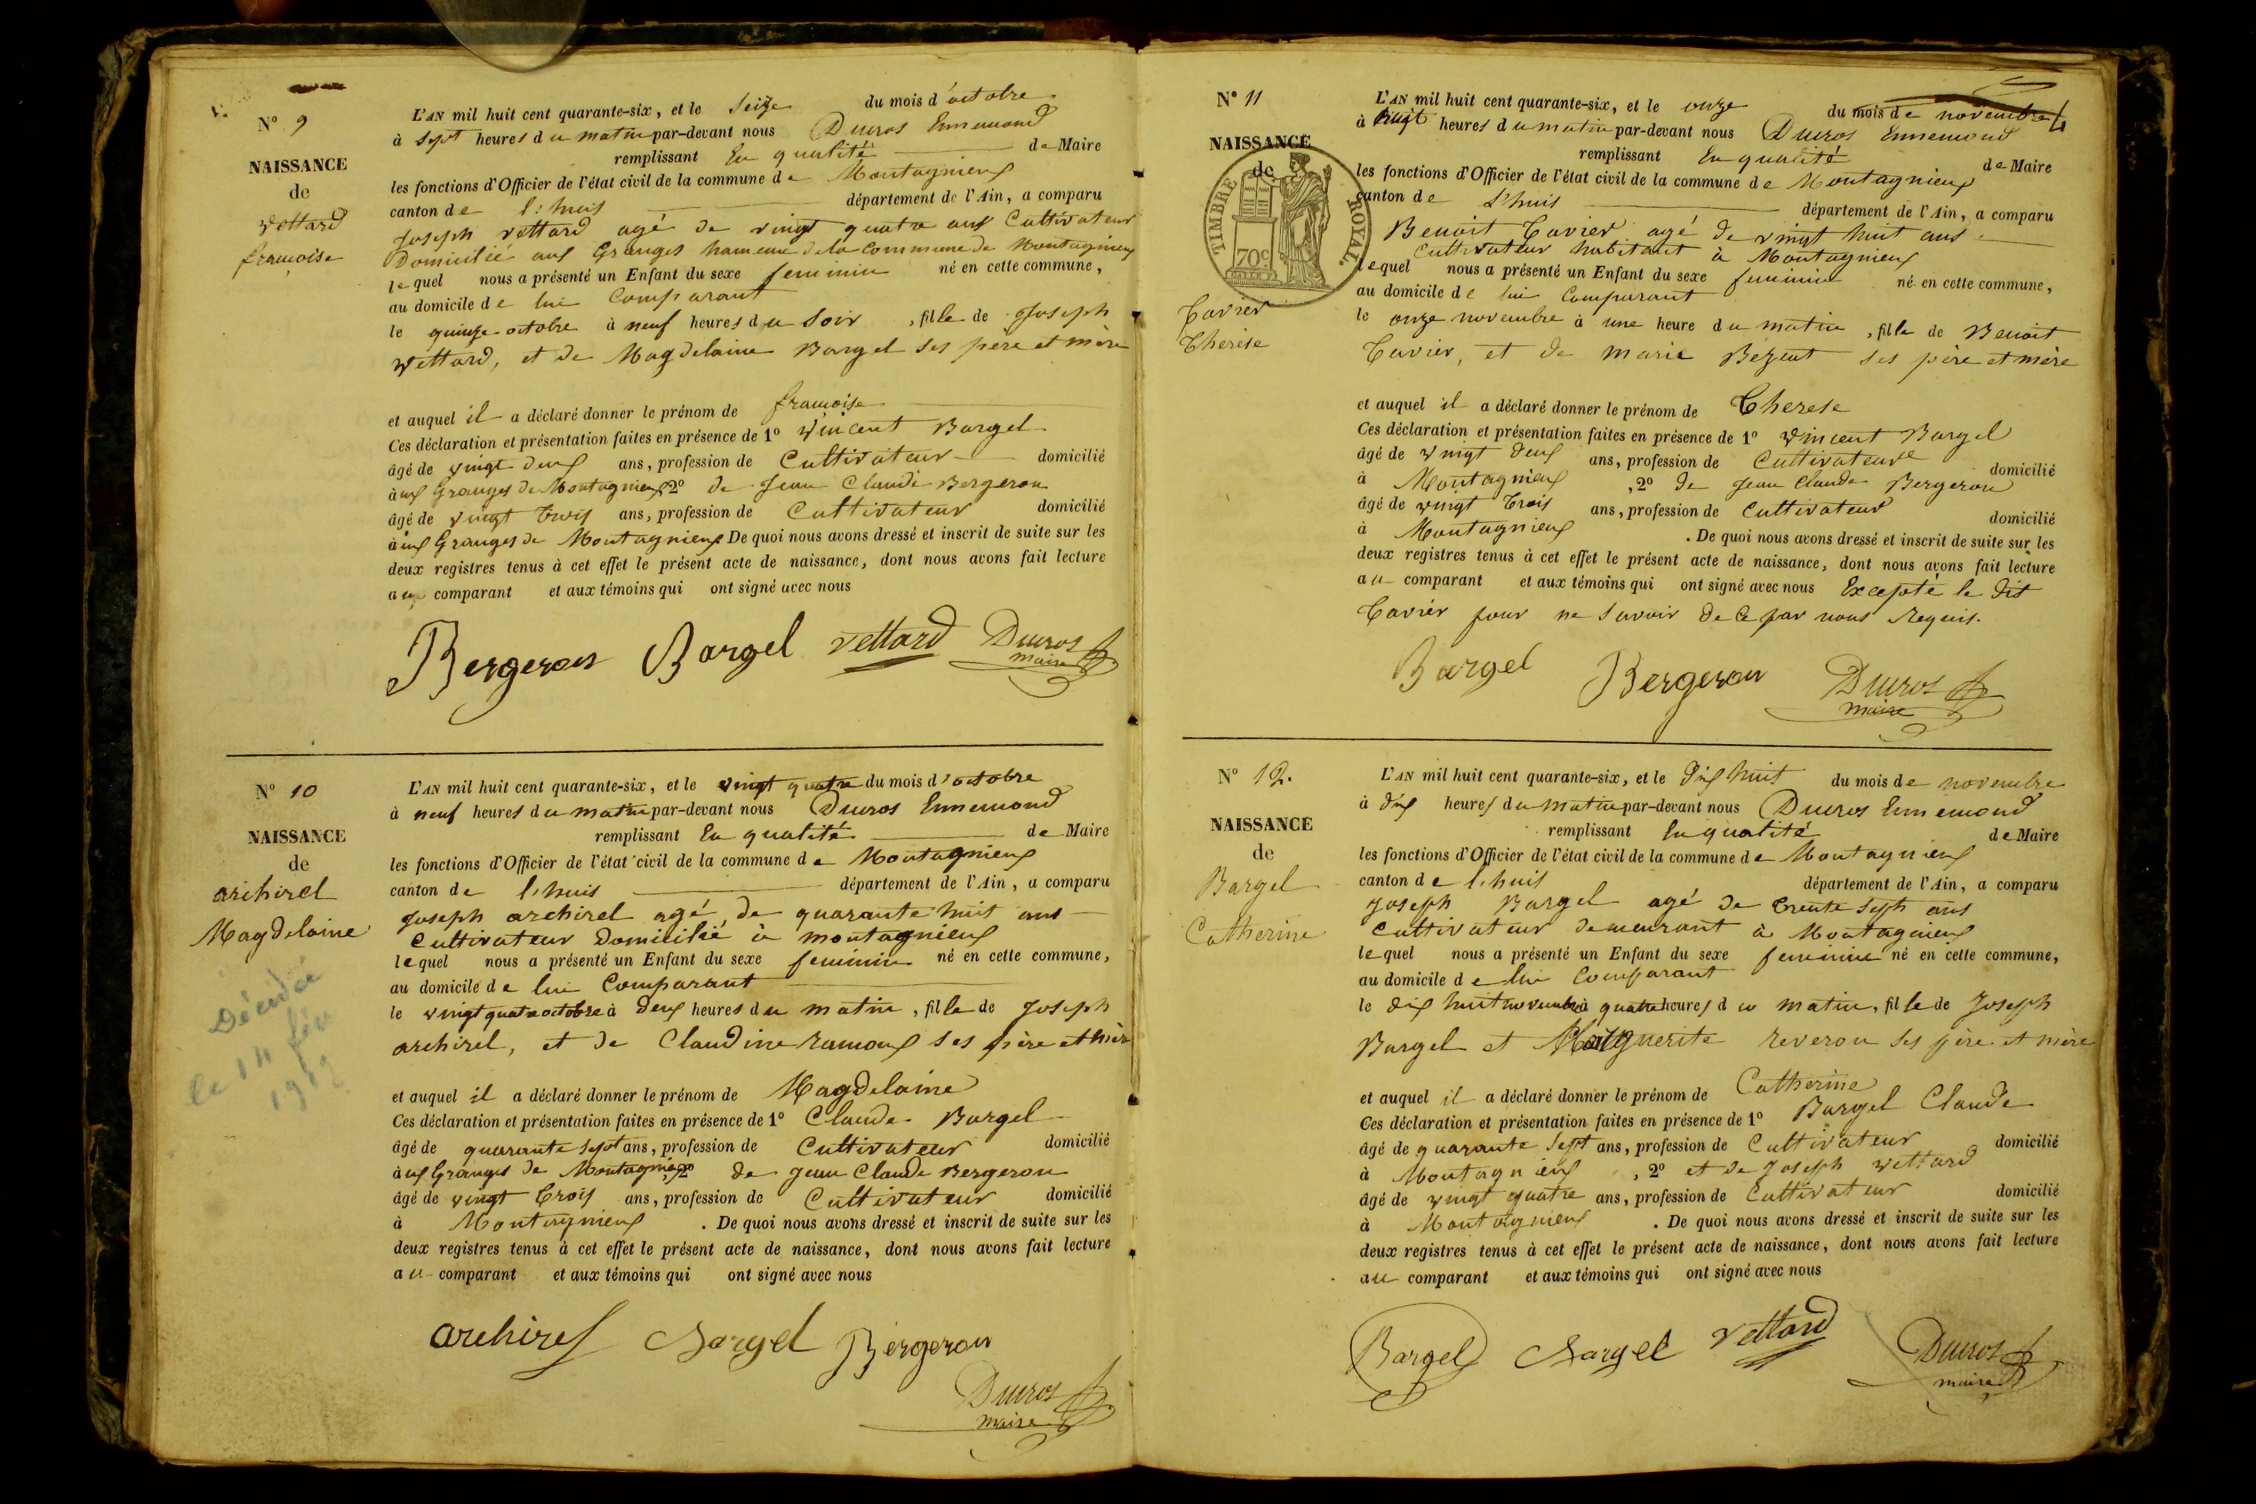 N° 9
NAISSANCE
de
Vettard
françoise
L'AN mil huit cent quarante-six, et le Seize du mois d'octobre
à Sept heures du matin par-devant nous Ducros Ennemond
remplissant En qualité de Maire
les fonctions d'Officier de l'état civil de la commune de Montagnieux
canton de l'huis département de l'Ain, a comparu
Joseph Vettard agé de vingt quatre ans Cultivateur
Domicilié aux Granges hameau de la Commune de Montagnieux
lequel nous a présenté un Enfant du sexe feminin né en cette commune,
au domicile de lui Comparant
le quinze octobre à neuf heures du Soir, fille de Joseph
Vettard, et de Magdelaine Bargel ses père et mère
et auquel il a déclaré donner le prénom de françoise
Ces déclaration et présentation faites en présence de 1° Vincent Bargel
âgé de vingt deux ans, profession de Cultivateur domicilié
à aux Granges de Montagnieux, 2° de Jean Claude Bergeron
âgé de vingt trois ans, profession de Cultivateur domicilié
à aux Granges de Montagnieux. De quoi nous avons dressé et inscrit de suite sur les
deux registres tenus à cet effet le présent acte de naissance, dont nous avons fait lecture
au comparant et aux témoins qui ont signé avec nous
Bergeron Bargel Vettard Ducros
maire
N° 10
NAISSANCE
de
archirel
Magdelaine
Décédée
le 14 fév
1912
L'AN mil huit cent quarante-six, et le vingt quatre du mois d'octobre
à neuf heures du matin par-devant nous Ducros Ennemond
remplissant En qualité de Maire
les fonctions d'Officier de l'état civil de la commune de Montagnieux
canton de l'huis département de l'Ain, a comparu
Joseph archirel agé de quarante huit ans
Cultivateur Domicilié à montagnieux
lequel nous a présenté un Enfant du sexe feminin né en cette commune,
au domicile de lui Comparant
le vingt quatre octobre à deux heures du matin, fille de Joseph
archirel, et de Claudine ramoux ses père et mère
et auquel il a déclaré donner le prénom de Magdelaine
Ces déclaration et présentation faites en présence de 1° Claude Bargel
âgé de quarante sept ans, profession de Cultivateur domicilié
à aux Granges de Montagnieux, 2° de Jean Claude Bergeron
âgé de vingt trois ans, profession de Cultivateur domicilié
à Montagnieux. De quoi nous avons dressé et inscrit de suite sur les
deux registres tenus à cet effet le présent acte de naissance, dont nous avons fait lecture
au comparant et aux témoins qui ont signé avec nous
archirel Bargel Bergeron
Ducros
maire
N° 11
NAISSANCE
de
TIMBRE ROYAL.
70c
Tavier
Thérèse
L'AN mil huit cent quarante-six, et le onze du mois de novembre
à huit heures du matin par-devant nous Ducros Ennemond
remplissant En qualité de Maire
les fonctions d'Officier de l'état civil de la commune de Montagnieux
canton de L'huis département de l'Ain, a comparu
Benoit Tavier agé de vingt huit ans
Cultivateur habitant à Montagnieux
lequel nous a présenté un Enfant du sexe feminin né en cette commune,
au domicile de lui Comparant
le onze novembre à une heure du matin, fille de Benoit
Tavier, et de marie ses père et mère
et auquel il a déclaré donner le prénom de Therese
Ces déclaration et présentation faites en présence de 1° Vincent Bargel
âgé de vingt deux ans, profession de Cultivateur domicilié
à Montagnieux, 2° de Jean Claude Bergeron
âgé de vingt trois ans, profession de Cultivateur domicilié
à Montagnieux. De quoi nous avons dressé et inscrit de suite sur les
deux registres tenus à cet effet le présent acte de naissance, dont nous avons fait lecture
au comparant et aux témoins qui ont signé avec nous Excepté le dit
Tavier pour ne Savoir de Ce par nous Requis.
Bargel Bergeron Ducros
maire
N° 12.
NAISSANCE
de
Bargel
Catherine
L'AN mil huit cent quarante-six, et le dix huit du mois de novembre
à dix heures du matin par-devant nous Ducros Ennemond
remplissant En qualité de Maire
les fonctions d'Officier de l'état civil de la commune de Montagnieux
canton de l'huis département de l'Ain, a comparu
Joseph Bargel agé de trente Sept ans
Cultivateur demeurant à Montagnieux
lequel nous a présenté un Enfant du sexe feminin né en cette commune,
au domicile de lui Comparant
le dix huit novembre à quatre heures du matin, fille de Joseph
Bargel et Marguerite reveron ses père et mère
et auquel il a déclaré donner le prénom de Catherine
Ces déclaration et présentation faites en présence de 1° Bargel Claude
âgé de quarante Sept ans, profession de Cultivateur domicilié
à Montagnieux, 2° et de Joseph Vettard
âgé de vingt quatre ans, profession de Cultivateur domicilié
à Montagnieux. De quoi nous avons dressé et inscrit de suite sur les
deux registres tenus à cet effet le présent acte de naissance, dont nous avons fait lecture
au comparant et aux témoins qui ont signé avec nous
Bargel Bargel Vettard Ducros
maire